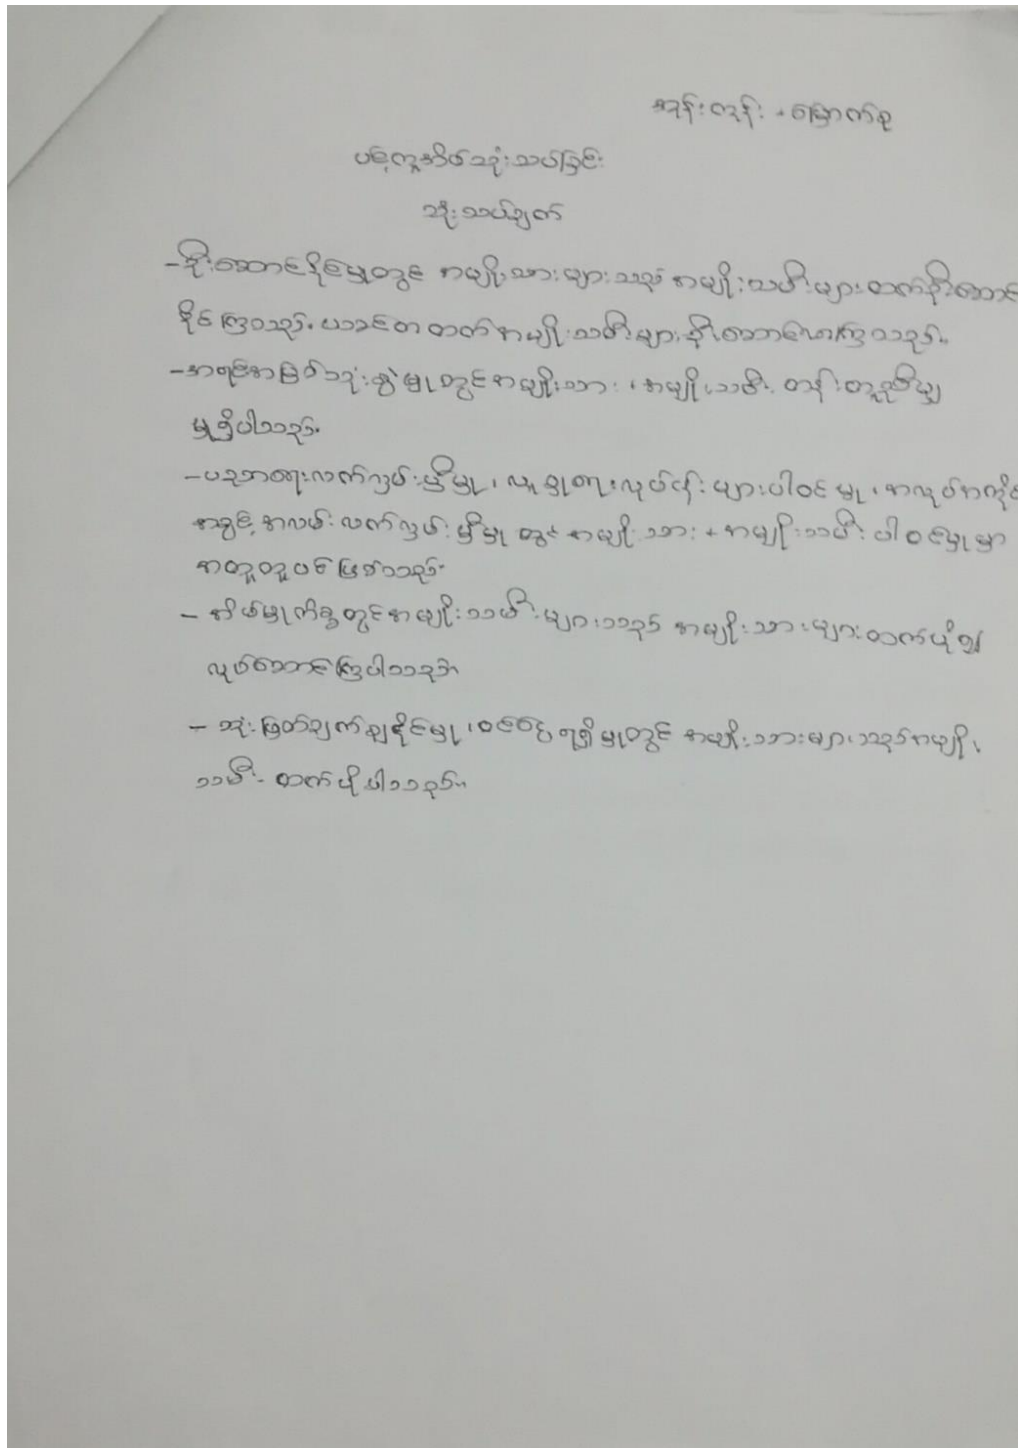 အုန်းကုန်း + မြောက်စု
ပင့်ကူအိမ်သုံးသပ်ခြင်း
သုံးသပ်ချက်
-ဦးဆောင်နိုင်မှုတွင် အမျိုးသားများသည် အမျိုးသမီးများထက်ဦးဆောင်
နိုင်ကြသည်။ ယခင်ကထက်အမျိုးသမီးများ ဦးဆောင်လာကြသည်။
-အရင်းအမြစ်သုံးစွဲမှုတွင်အမျိုးသား၊ အမျိုးသမီး တန်းတူညီမျှ
မှုရှိပါသည်။
-ပညာရေးလက်လှမ်းမှီမှု၊ လူမှုရေးလုပ်ငန်းများပါဝင်မှု၊ အလုပ်အကိုင်
အခွင့်အလမ်းလက်လှမ်းမှီမှုတွင် အမျိုးသား + အမျိုးသမီး ပါဝင်မှုမှာ
အတူတူပင်ဖြစ်သည်။
- အိမ်မှုကိစ္စတွင်အမျိုးသမီးများသည် အမျိုးသားများထက်ပို၍
လုပ်ဆောင်ကြပါသည်။
- ဆုံးဖြတ်ချက်ချနိုင်မှု၊ ဝင်ငွေရရှိမှုတွင် အမျိုးသားများသည်အမျိုး
သမီးထက်ပိုပါသည်။